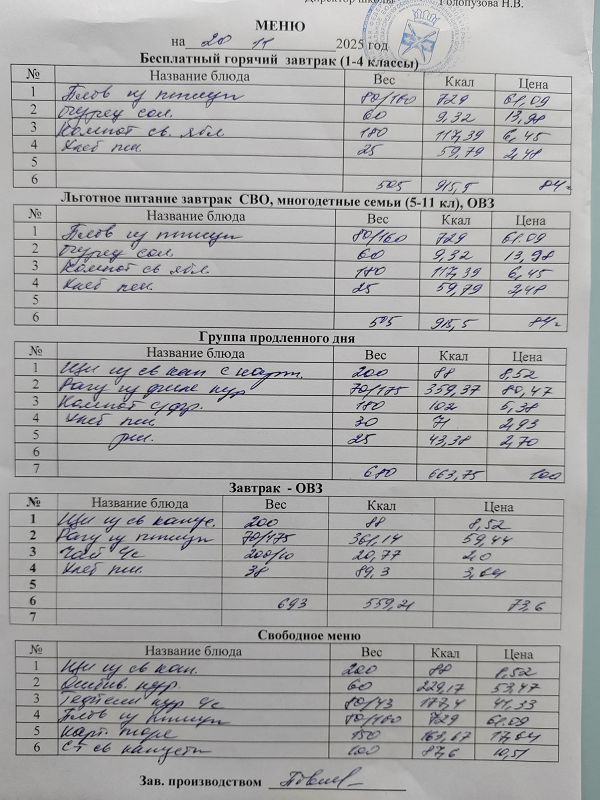 Директор школы Голопузова Н.В.
МЕНЮ
на 20 2025 год
Бесплатный горячий завтрак (1-4 классы)
№ Название блюда Вес Ккал Цена
1 Плов из птицы 80/160 729 61,09
2 Огурец сол. 60 9,32 13,98
3 Компот св. ябл 180 117,39 6,45
4 Хлеб пш. 25 59,79 2,48
5
6 505 915,5 84
Льготное питание завтрак СВО, многодетные семьи (5-11 кл), ОВЗ
№ Название блюда Вес Ккал Цена
1 Плов из птицы 80/160 729 61.09
2 Огурец сол. 60 9,32 13,98
3 Компот св ябл 180 117,39 6,45
4 Хлеб пш. 25 59,79 2,48
5
6 505 915,5 84
Группа продленного дня
№ Название блюда Вес Ккал Цена
1 Щи из св кап с карт. 200 88 8,52
2 Рагу из филе кур 70/175 359,37 80,47
3 Компот с/фр. 180 102 5,38
4 Хлеб пш. 30 71 2,93
5 рж. 25 43,38 2,70
7 680 663,75 100
Завтрак - ОВЗ
№ Название блюда Вес Ккал Цена
1 Щи из св капус. 200 88 8,52
2 Рагу из птицы 70/175 361,14 59,44
3 Чай 200/10 20,77
4 Хлеб пш. 38 89,3
5
6 693 559,21 73,6
7
Свободное меню
№ Название блюда Вес Ккал Цена
1 Щи из св кап. 200 88 8,52
2 Отбив. кур 60 229,17 53,47
3 Тефтели кур 80/43 177,4 41,33
4 Плов из птицы 80/160 729 61.09
5 Карт. пюре 150 163,67 17,04
6 Ст св капусты 100 87,6 10,51
Зав. производством